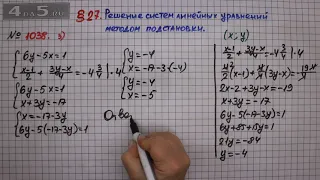 4
§27. Решение систем линейных уравнений
методом подстановки.
№ 1038. 3)
(x; y)
{6y-5x=1
{(x-1)/2 + (3y-x)/4 = -4 3/4 |·4
{6y-5x=1
{x+3y=-17
{x=-17-3y
{6y-5(-17-3y)=1
{y=-4
{x=-17-3·(-4)
{y=-4
{x=-5
Отве
(x-1)/2 + (3y-x)/4 = -4 3/4 |·4
2x-2+3y-x=-19
x+3y=-17
6y-5(-17-3y)=1
6y+85+15y=1
21y=-84
y=-4